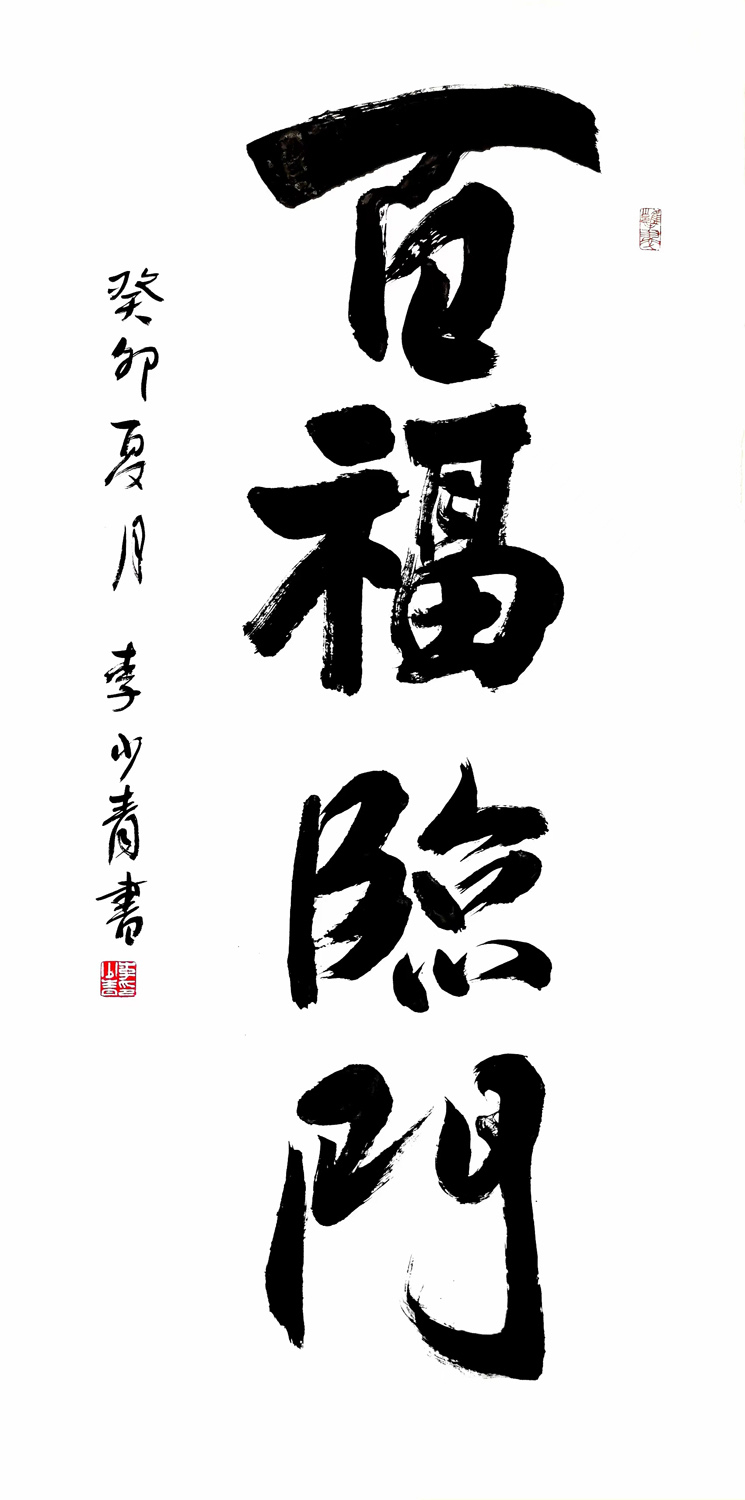 百福臨門
癸卯夏月 李少青書